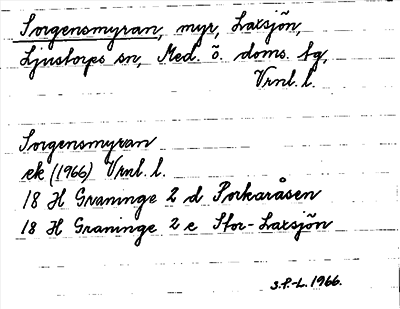 Sorgensmyran, myr, Laxsjön,
Ljustorps sn, Med. ö. doms. tg,
Vrnl. l.
Sorgensmyran
ek (1966) Vrnl. l.
18 H Graninge 2 d Porkaråsen
18 H Graninge 2 e Stor-Laxsjön
S.P.-L. 1966.